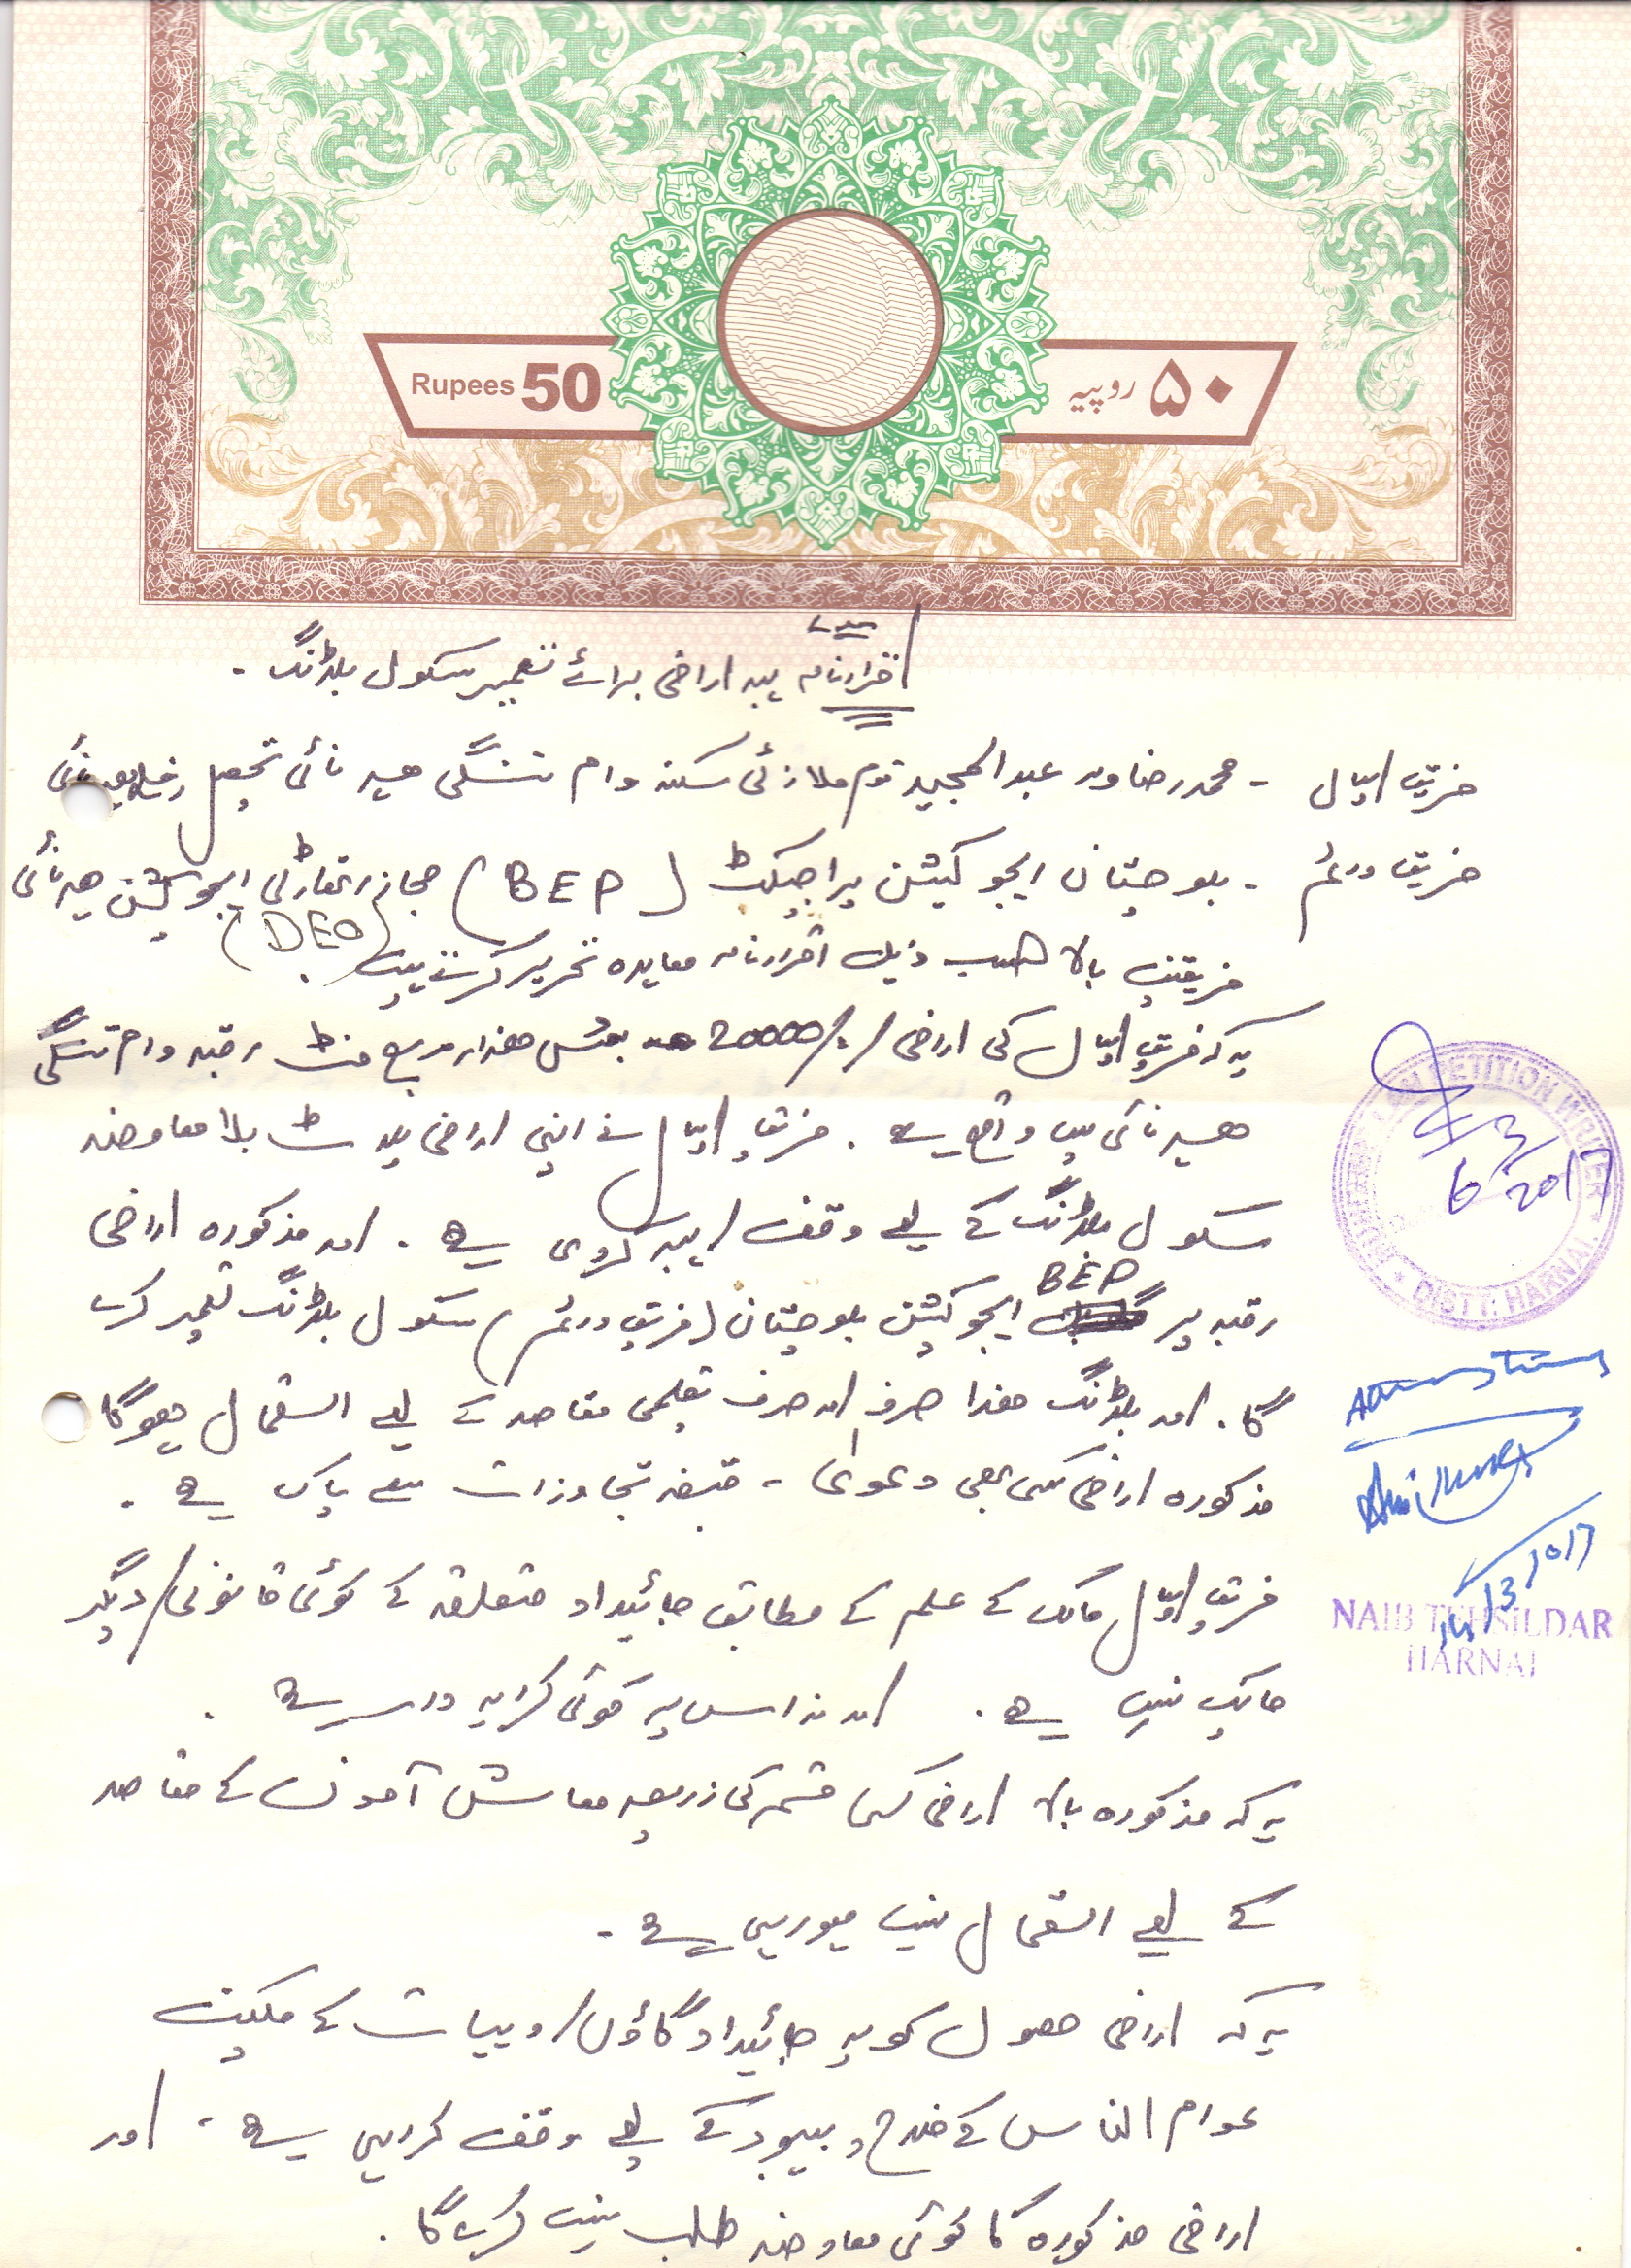 Rupees 50
۵۰ روپیہ
اقرارنامہ ہبہ اراضی برائے تعمیر سکول بلڈنگ ۔
فریق اوّل ۔ محمد رضا ولد عبدالمجید قوم ملازئی سکنہ وام تنگی ہرنائی تحصیل
فریق دوئم ۔ بلوچستان ایجوکیشن پراجیکٹ (BEP) مجاز اتھارٹی ایجوکیشن ہرنائی
(DEO)
فریقین بالا حسب ذیل اقرارنامہ معاہدہ تحریر کرتے ہیں ۔
یہ کہ فریق اوّل کی اراضی /20000/ بیس ھزار مربع فٹ رقبہ وام تنگی
ہرنائی میں واقع ہے ۔ فریق اوّل نے اپنی اراضی بلا معاوضہ
سکول بلڈنگ کے لیے وقف / ہبہ کردی ہے ۔ اور مذکورہ اراضی
BEP
رقبہ پر ایجوکیشن بلوچستان (فریق دوئم) سکول بلڈنگ تعمیر کرے
گا ۔ اور بلڈنگ ھذا صرف اور صرف تعلیمی مقاصد کے لیے استعمال ھوگا
مذکورہ اراضی کسی بھی دعویٰ ۔ قبضہ تجاوزات سے پاک ہے ۔
فریق اوّل مالک کے علم کے مطابق جائیداد متعلقہ کے کوئی قانونی / دیگر
مالک نہیں ہے ۔ اور نہ اس پہ کوئی کرایہ دار ہے ۔
یہ کہ مذکورہ بالا اراضی کسی قسم کی ذریعہ معاش آمدنی کے مقاصد
کے لیے استعمال نہیں ہورہی ہے ۔
یہ کہ اراضی حصول کو یہ جائیداد گاؤں / دیہات کے ملکیت
عوام الناس کے فلاح و بہبود کے لیے وقف کررہی ہے ۔ اور
اراضی مذکورہ کا کوئی معاوضہ طلب نہیں کرے گا ۔
PETITION WRITER
DISTT: HARNAI
6 3 2017
14/3/2017
NAIB TEHSILDAR
HARNAI